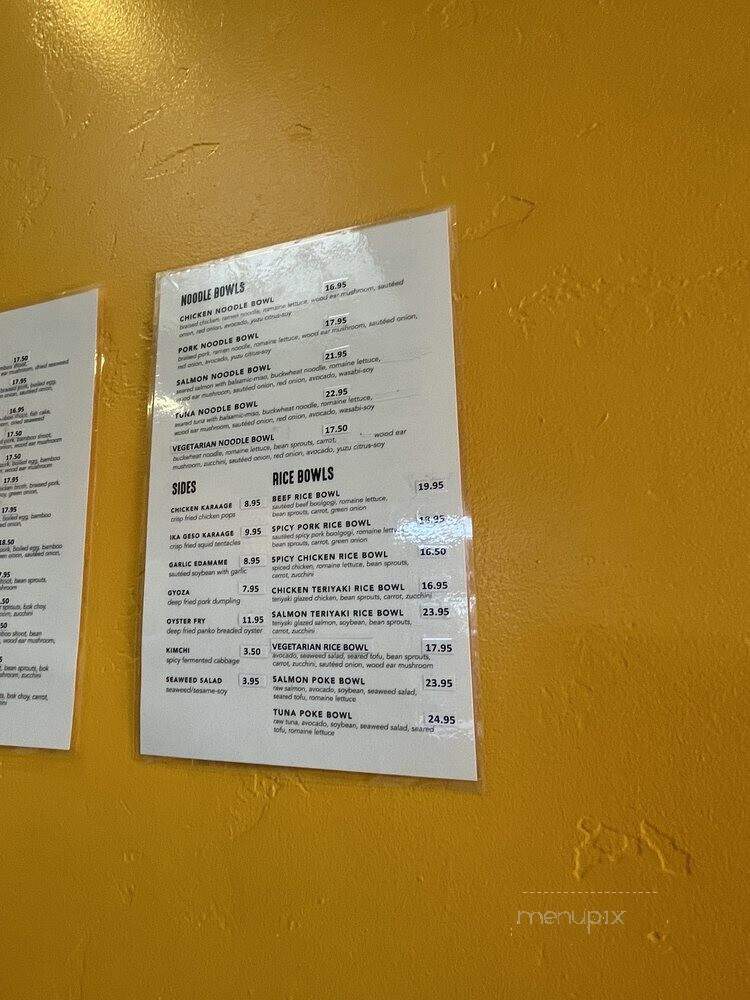 17.50
ear mushroom, dried seaweed
17.95
braised pork, boiled egg,
16.95
17.50
17.50
boiled egg, bamboo
17.95
17.95
boiled egg, bamboo
18.50
sprouts, bok choy,
bean sprouts, bok
bok choy, carrot,
NOODLE BOWLS
CHICKEN NOODLE BOWL 16.95
braised chicken, ramen noodle, romaine lettuce, wood ear mushroom, sautéed
onion, red onion, avocado, yuzu citrus-soy
PORK NOODLE BOWL 17.95
braised pork, ramen noodle, romaine lettuce, wood ear mushroom, sautéed onion,
red onion, avocado, yuzu citrus-soy
SALMON NOODLE BOWL 21.95
seared salmon with balsamic-miso, buckwheat noodle, romaine lettuce,
wood ear mushroom, sautéed onion, red onion, avocado, wasabi-soy
TUNA NOODLE BOWL 22.95
seared tuna with balsamic-miso, buckwheat noodle, romaine lettuce,
wood ear mushroom, sautéed onion, red onion, avocado, wasabi-soy
VEGETARIAN NOODLE BOWL 17.50
buckwheat noodle, romaine lettuce, bean sprouts, carrot, wood ear
mushroom, zucchini, sautéed onion, red onion, avocado, yuzu citrus-soy
SIDES
CHICKEN KARAAGE 8.95
crisp fried chicken pops
IKA GESO KARAAGE 9.95
crisp fried squid tentacles
GARLIC EDAMAME 8.95
sautéed soybean with garlic
GYOZA 7.95
deep fried pork dumpling
OYSTER FRY 11.95
deep fried panko breaded oyster
KIMCHI 3.50
spicy fermented cabbage
SEAWEED SALAD 3.95
seaweed/sesame-soy
RICE BOWLS
BEEF RICE BOWL 19.95
sautéed beef boolgogi, romaine lettuce,
bean sprouts, carrot, green onion
SPICY PORK RICE BOWL 18.95
sautéed spicy pork boolgogi, romaine lettuce,
bean sprouts, carrot, green onion
SPICY CHICKEN RICE BOWL 16.50
spiced chicken, romaine lettuce, bean sprouts,
carrot, zucchini
CHICKEN TERIYAKI RICE BOWL 16.95
teriyaki glazed chicken, bean sprouts, carrot, zucchini
SALMON TERIYAKI RICE BOWL 23.95
teriyaki glazed salmon, soybean, bean sprouts,
carrot, zucchini
VEGETARIAN RICE BOWL 17.95
avocado, seaweed salad, seared tofu, bean sprouts,
carrot, zucchini, sautéed onion, wood ear mushroom
SALMON POKE BOWL 23.95
raw salmon, avocado, soybean, seaweed salad,
seared tofu, romaine lettuce
TUNA POKE BOWL 24.95
raw tuna, avocado, soybean, seaweed salad, seared
tofu, romaine lettuce
menupix